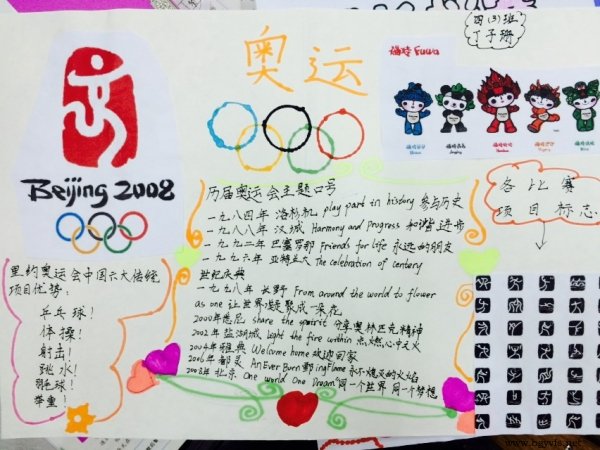 四(3)班
丁子珊
奥运
福娃 Fuwa
Beijing 2008
各比赛
项目标志
历届奥运会主题口号
一九八四年 洛杉机 play part in history 参与历史
一九八八年 汉城 Harmony and Progress 和谐进步
一九九二年 巴塞罗那 Friends for life 永远的朋友
一九九六年 亚特兰大 The celebration of century
世纪庆典
一九九八年 长野 From around the world to flower
as one 让世界凝聚成一朵花
2000年悉尼 share the spirit 分享奥林匹克精神
2002年 盐湖城 Light the fire within 点燃心中之火
2004年雅典 Welcome home 欢迎回家
2006年 都灵 An Ever Burning Flame 永不熄灭的火焰
2008年 北京 One world One Dream 同一个世界 同一个梦想
里约奥运会中国六大传统
项目优势：
乒乓球！
体操！
射击！
跳水！
羽毛球！
举重！